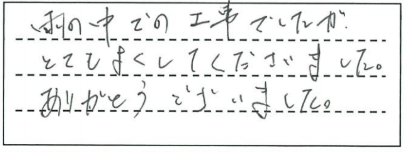 雨の中での工事でしたが
とてもよくしてくださいました。
ありがとうございました。